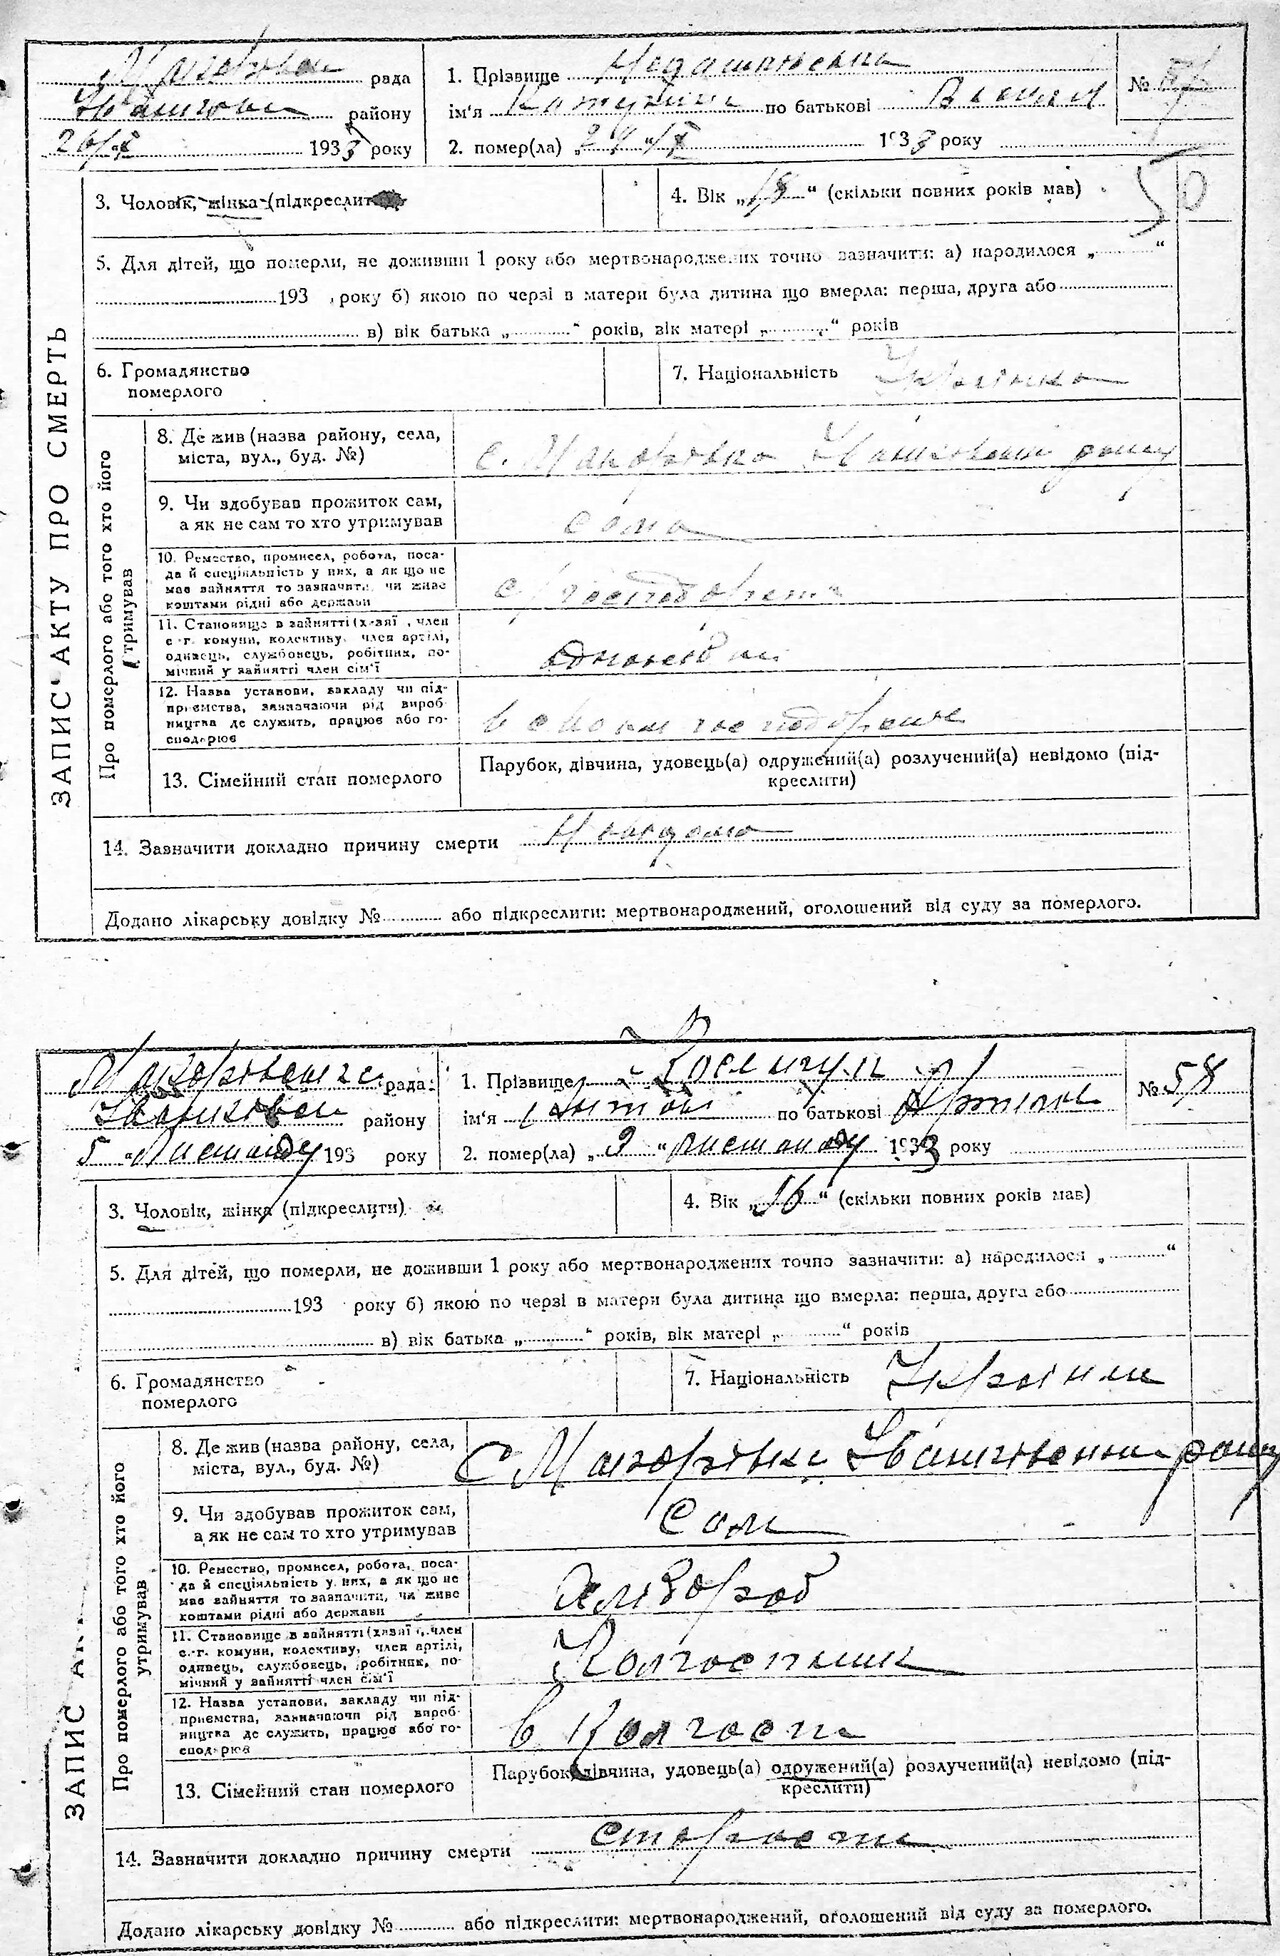 рада
району
26/X 1933 року
1. Прізвище
ім'я по батькові
№ 57
2. помер(ла) „24 "/X 1933 року
50
3. Чоловік, жінка (підкреслит
4. Вік „18" (скільки повних років мав)
5. Для дітей, що померли, не доживши 1 року або мертвонароджених точно зазначити: а) народилося „ "
193 , року б) якою по черзі в матери була дитина що вмерла: перша, друга або
в) вік батька „ " років, вік матері „ " років
6. Громадянство
померлого
7. Національність Українка
ЗАПИС АКТУ ПРО СМЕРТЬ
Про померлого або того хто його
утримував
8. Де жив (назва району, села,
міста, вул., буд. №)
с. Макорівка Іваньківський району
9. Чи здобував прожиток сам,
а як не сам то хто утримував
сама
10. Ремество, промисел, робота, поса-
да й спеціяльність у них, а як що не
має зайняття то зазначити, чи живе
коштами рідні або держави
11. Становище в зайнятті (хазяї , член
с.-г. комуни, колективу, член артілі,
одинець, службовець, робітник, по-
мічний у зайнятті член сім'ї
12. Назва установи, закладу чи під-
приємства, зазначаючи рід вироб-
ництва де служить, працює або го-
сподарює
в своєму господарстві
13. Сімейний стан померлого
Парубок, дівчина, удовець(а) одружений(а) розлучений(а) невідомо (під-
креслити)
14. Зазначити докладно причину смерти Невідомо
Додано лікарську довідку № або підкреслити: мертвонароджений, оголошений від суду за померлого.
рада
району
5 " Листопаду 193 року
1. Прізвище
ім'я Антон по батькові
№ 58
2. помер(ла) „ 3 " листопаду 1933 року
3. Чоловік, жінка (підкреслити)
4. Вік „ " (скільки повних років мав)
5. Для дітей, що померли, не доживши 1 року або мертвонароджених точно зазначити: а) народилося „ "
193 року б) якою по черзі в матери була дитина що вмерла: перша, друга або
в) вік батька „ " років, вік матері „ " років
6. Громадянство
померлого
7. Національність Українець
ЗАПИС
Про померлого або того хто його
утримував
8. Де жив (назва району, села,
міста, вул., буд. №)
с Макорівка Іваньківський району
9. Чи здобував прожиток сам,
а як не сам то хто утримував
Сам
10. Ремество, промисел, робота, поса-
да й спеціяльність у них, а як що не
має зайняття то зазначити, чи живе
коштами рідні або держави
Хлібороб
11. Становище в зайнятті (хазяї , член
с.-г. комуни, колективу, член артілі,
одинець, службовець, робітник, по-
мічний у зайнятті член сім'ї
Колгоспник
12. Назва установи, закладу чи під-
приємства, зазначаючи рід вироб-
ництва де служить, працює або го-
сподарює
в Колгоспі
13. Сімейний стан померлого
Парубок, дівчина, удовець(а) одружений(а) розлучений(а) невідомо (під-
креслити)
14. Зазначити докладно причину смерти старости
Додано лікарську довідку № або підкреслити: мертвонароджений, оголошений від суду за померлого.